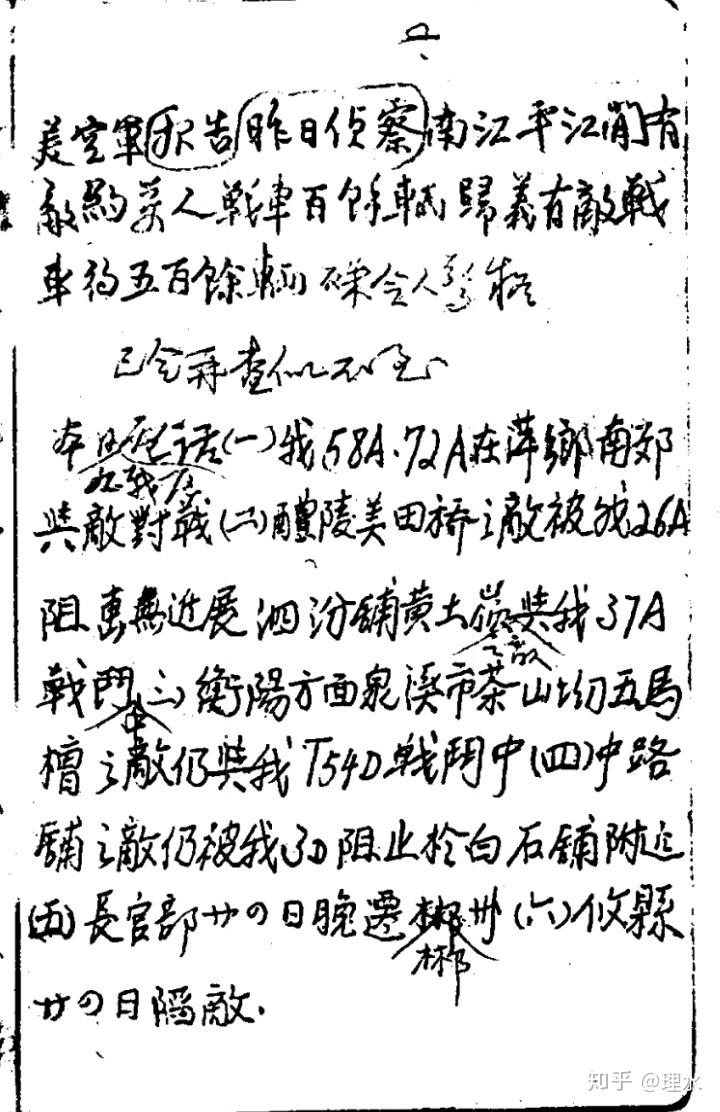 美空軍报告昨日偵察南江平江間有
敵約萬人戰車百餘輛歸義有敵戰
車約五百餘輛 令人
已令再查似不
本日電话(一)我58A.72A在萍鄉南郊
九战区
與敵對戰(二)醴陵美田橋之敵被我26A
阻 無近展泗汾鋪黄土嶺與我37A
之敵
戰鬥(三)衡陽方面泉溪市茶山坳五馬
中
槽之敵仍與我T54D戰鬥中(四)中路
鋪之敵仍被我3D阻止於白石鋪附近
(五)長官部廿四日晚遷郴州(六)攸縣
郴
廿四日陷敵.
知乎 @理水